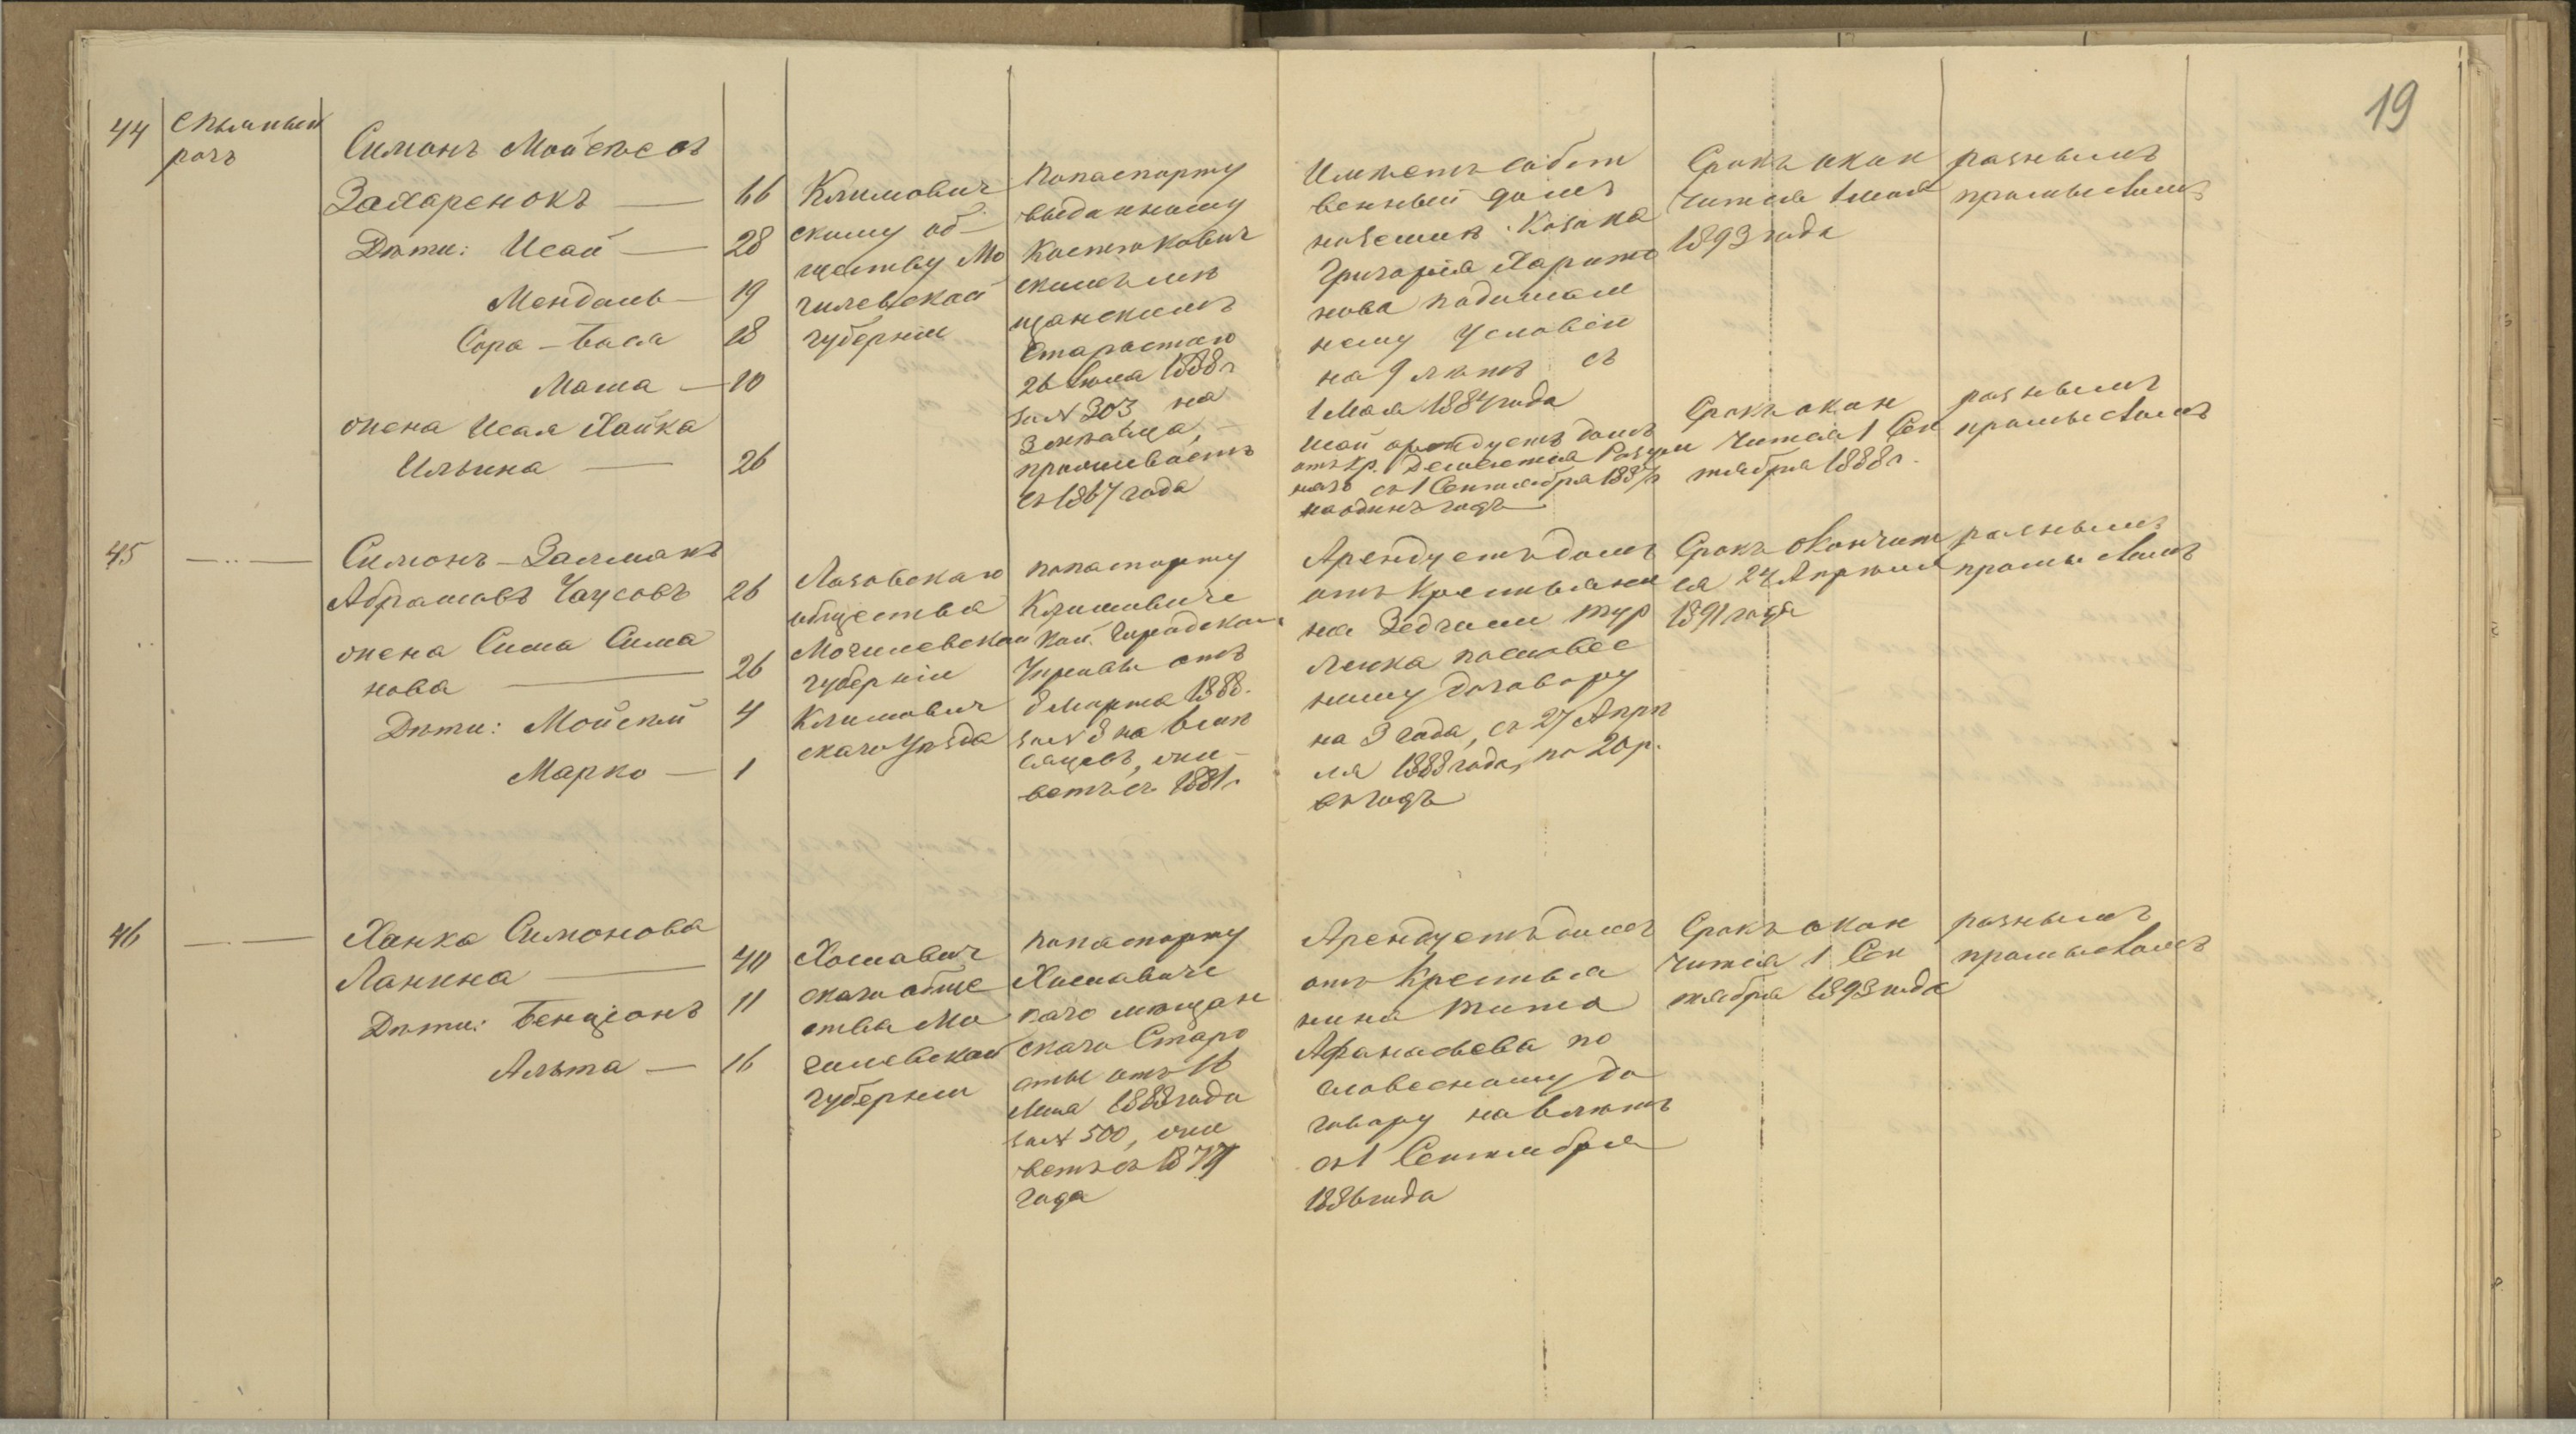 19
44
рогъ
Симонъ Мойсеевъ
Захаренокъ — 66
Дѣти: Исай — 28
Мендель — 19
Сора-Бася 18
Маша — 10
жена Исая Хайка
Ильина — 26
Климович
скому об-
ществу Мо
гилевской
губерніи
по паспорту
выданному
Костюкович
скимъ мѣ
щанскимъ
Старостою
26 Іюля 1888 г
за № 303 на
проживаетъ
съ 1867 года
Имѣетъ собст
венный домъ
на землѣ Козака
Григорія Харито
нова по домаш
нему условію
на 9 лѣтъ съ
1 Мая 1884 года
Исай арендуетъ домъ
отъ кр.
съ 1 Сентября 1887 г
на одинъ годъ
Срокъ окон
чится 1 мая
1893 года
Срокъ окон
чится 1 Сен
тября 1888 г.
разнымъ
промысломъ
разнымъ
промысломъ
45
— „ —
Симонъ-Залманъ
Абрамовъ Чаусовъ 26
жена Сима Симо
нова — 26
Дѣти: Мойсей 4
Марко — 1
Лозовскаго
общества
Могилевской
губерніи
Климович
скаго уѣзда
по паспорту
Климовичс
кой Городской
Управы отъ
8 марта 1888.
за № 8 на 6 мѣ
сяцевъ, жи-
ветъ съ 1881 г.
Арендуетъ домъ
отъ крестьяни
на
по словес
ному договору
на 3 года, съ 27 Апрѣ
ля 1888 года, по 20 р.
въ годъ
Срокъ окончит
ся 27 Апрѣля
1891 года
разнымъ
промысломъ
46
— „ —
Ханка Симонова
Ланкина — 40
Дѣти: Бенціонъ 11
Альта — 16
Хославич
скаго обще
ства Мо
гилевской
губерніи
по паспорту
Хославичс
каго мѣщан
скаго Старо
сты отъ 16
Мая 1888 года
за № 500, жи
ветъ съ 1877
года
Арендуетъ домъ
отъ Крестья
нина Тита
Афанасьева по
словесному до
говору на 6 лѣтъ
съ 1 Сентября
1886 года
Срокъ окон
чится 1 Сен
тября 1893 года
разнымъ
промысломъ